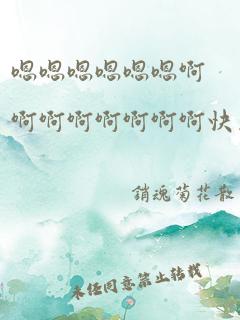 嗯嗯嗯嗯嗯嗯啊
啊啊啊啊啊啊啊快
銷魂菊花散
未经同意禁止转载